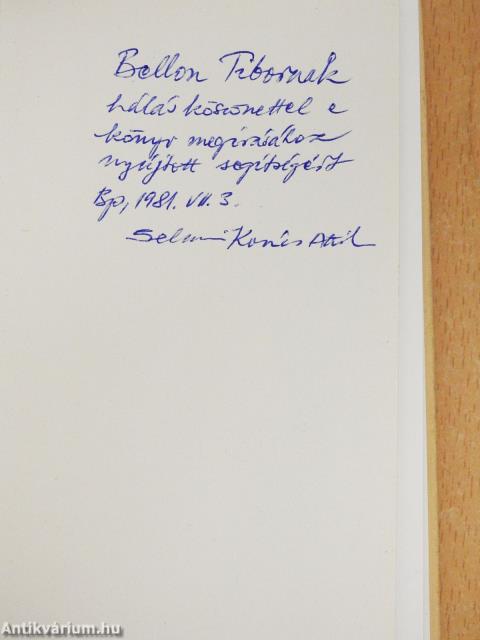 Bellon Tibornak
hálás köszönettel e
könyv megírásához
nyújtott segítségért
Bp, 1981. VII. 3.
Selmeczi Kovács Attila
Antikvárium.hu